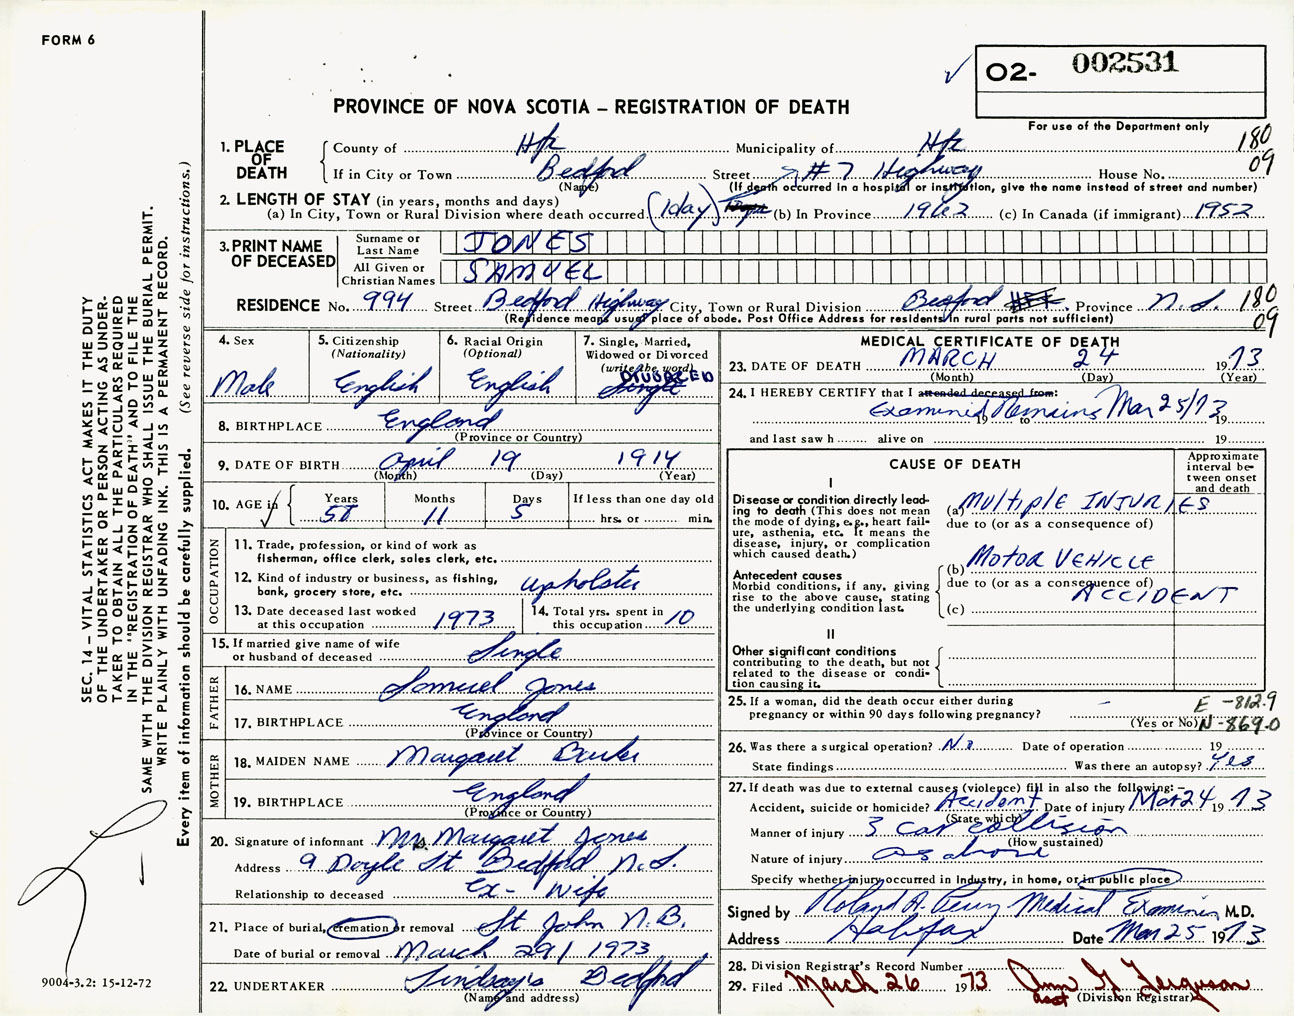 FORM 6
O2- 002531
PROVINCE OF NOVA SCOTIA – REGISTRATION OF DEATH
For use of the Department only
1. PLACE OF DEATH
County of Hfx Municipality of Hfx 180
If in City or Town Bedford Street #7 Highway House No. 09
(Name) (If death occurred in a hospital or institution, give the name instead of street and number)
2. LENGTH OF STAY (in years, months and days)
(a) In City, Town or Rural Division where death occurred (1day) (b) In Province 1962 (c) In Canada (if immigrant) 1952
3. PRINT NAME OF DECEASED
Surname or Last Name JONES
All Given or Christian Names SAMUEL
RESIDENCE No. 994 Street Bedford Highway City, Town or Rural Division Bedford Hfx Province N.S. 180
(Residence means usual place of abode. Post Office Address for residents in rural parts not sufficient) 09
4. Sex
Male
5. Citizenship
(Nationality)
English
6. Racial Origin
(Optional)
English
7. Single, Married, Widowed or Divorced
(write the word)
DIVORCED
Single
8. BIRTHPLACE England
(Province or Country)
9. DATE OF BIRTH April 19 1914
(Month) (Day) (Year)
10. AGE in
Years Months Days If less than one day old
58 11 5 hrs. or min.
OCCUPATION
11. Trade, profession, or kind of work as fisherman, office clerk, sales clerk, etc.
12. Kind of industry or business, as fishing, bank, grocery store, etc. upholster
13. Date deceased last worked at this occupation 1973
14. Total yrs. spent in this occupation 10
15. If married give name of wife or husband of deceased Single
FATHER
16. NAME Samuel Jones
17. BIRTHPLACE England
(Province or Country)
MOTHER
18. MAIDEN NAME Margaret
19. BIRTHPLACE England
(Province or Country)
20. Signature of informant Mrs Margaret Jones
Address 9 Doyle St Bedford N.S.
Relationship to deceased Ex- Wife
21. Place of burial, cremation or removal St John N.B.
Date of burial or removal March 29/1973
22. UNDERTAKER Lindsay's Bedford
(Name and address)
MEDICAL CERTIFICATE OF DEATH
23. DATE OF DEATH MARCH 24 1973
(Month) (Day) (Year)
24. I HEREBY CERTIFY that I attended deceased from:
Examined Remains Mar 25/73
19 to 19
and last saw h alive on 19
CAUSE OF DEATH
Approximate interval between onset and death
I
Disease or condition directly leading to death (This does not mean the mode of dying, e.g., heart failure, asthenia, etc. It means the disease, injury, or complication which caused death.)
(a) MULTIPLE INJURIES
due to (or as a consequence of)
Antecedent causes
Morbid conditions, if any, giving rise to the above cause, stating the underlying condition last.
(b) MOTOR VEHICLE
due to (or as a consequence of)
(c) ACCIDENT
II
Other significant conditions contributing to the death, but not related to the disease or condition causing it.
25. If a woman, did the death occur either during pregnancy or within 90 days following pregnancy? –
(Yes or No)
E -812.9
N -869.0
26. Was there a surgical operation? No Date of operation 19
State findings Was there an autopsy? Yes
27. If death was due to external causes (violence) fill in also the following:
Accident, suicide or homicide? Accident Date of injury Mar 24 1973
(State which)
Manner of injury 3 car collision
(How sustained)
Nature of injury as above
Specify whether injury occurred in Industry, in home, or in public place
Signed by Roland A. Perry Medical Examiner M.D.
Address Halifax Date Mar 25 1973
28. Division Registrar's Record Number
29. Filed March 26 1973 Ann G Ferguson
asst (Division Registrar)
SEC. 14 – VITAL STATISTICS ACT MAKES IT THE DUTY
OF THE UNDERTAKER OR PERSON ACTING AS UNDER-
TAKER TO OBTAIN ALL THE PARTICULARS REQUIRED
IN THE "REGISTRATION OF DEATH" AND TO FILE THE
SAME WITH THE DIVISION REGISTRAR WHO SHALL ISSUE THE BURIAL PERMIT.
WRITE PLAINLY WITH UNFADING INK. THIS IS A PERMANENT RECORD.
Every item of information should be carefully supplied. (See reverse side for instructions.)
9004-3.2: 15-12-72